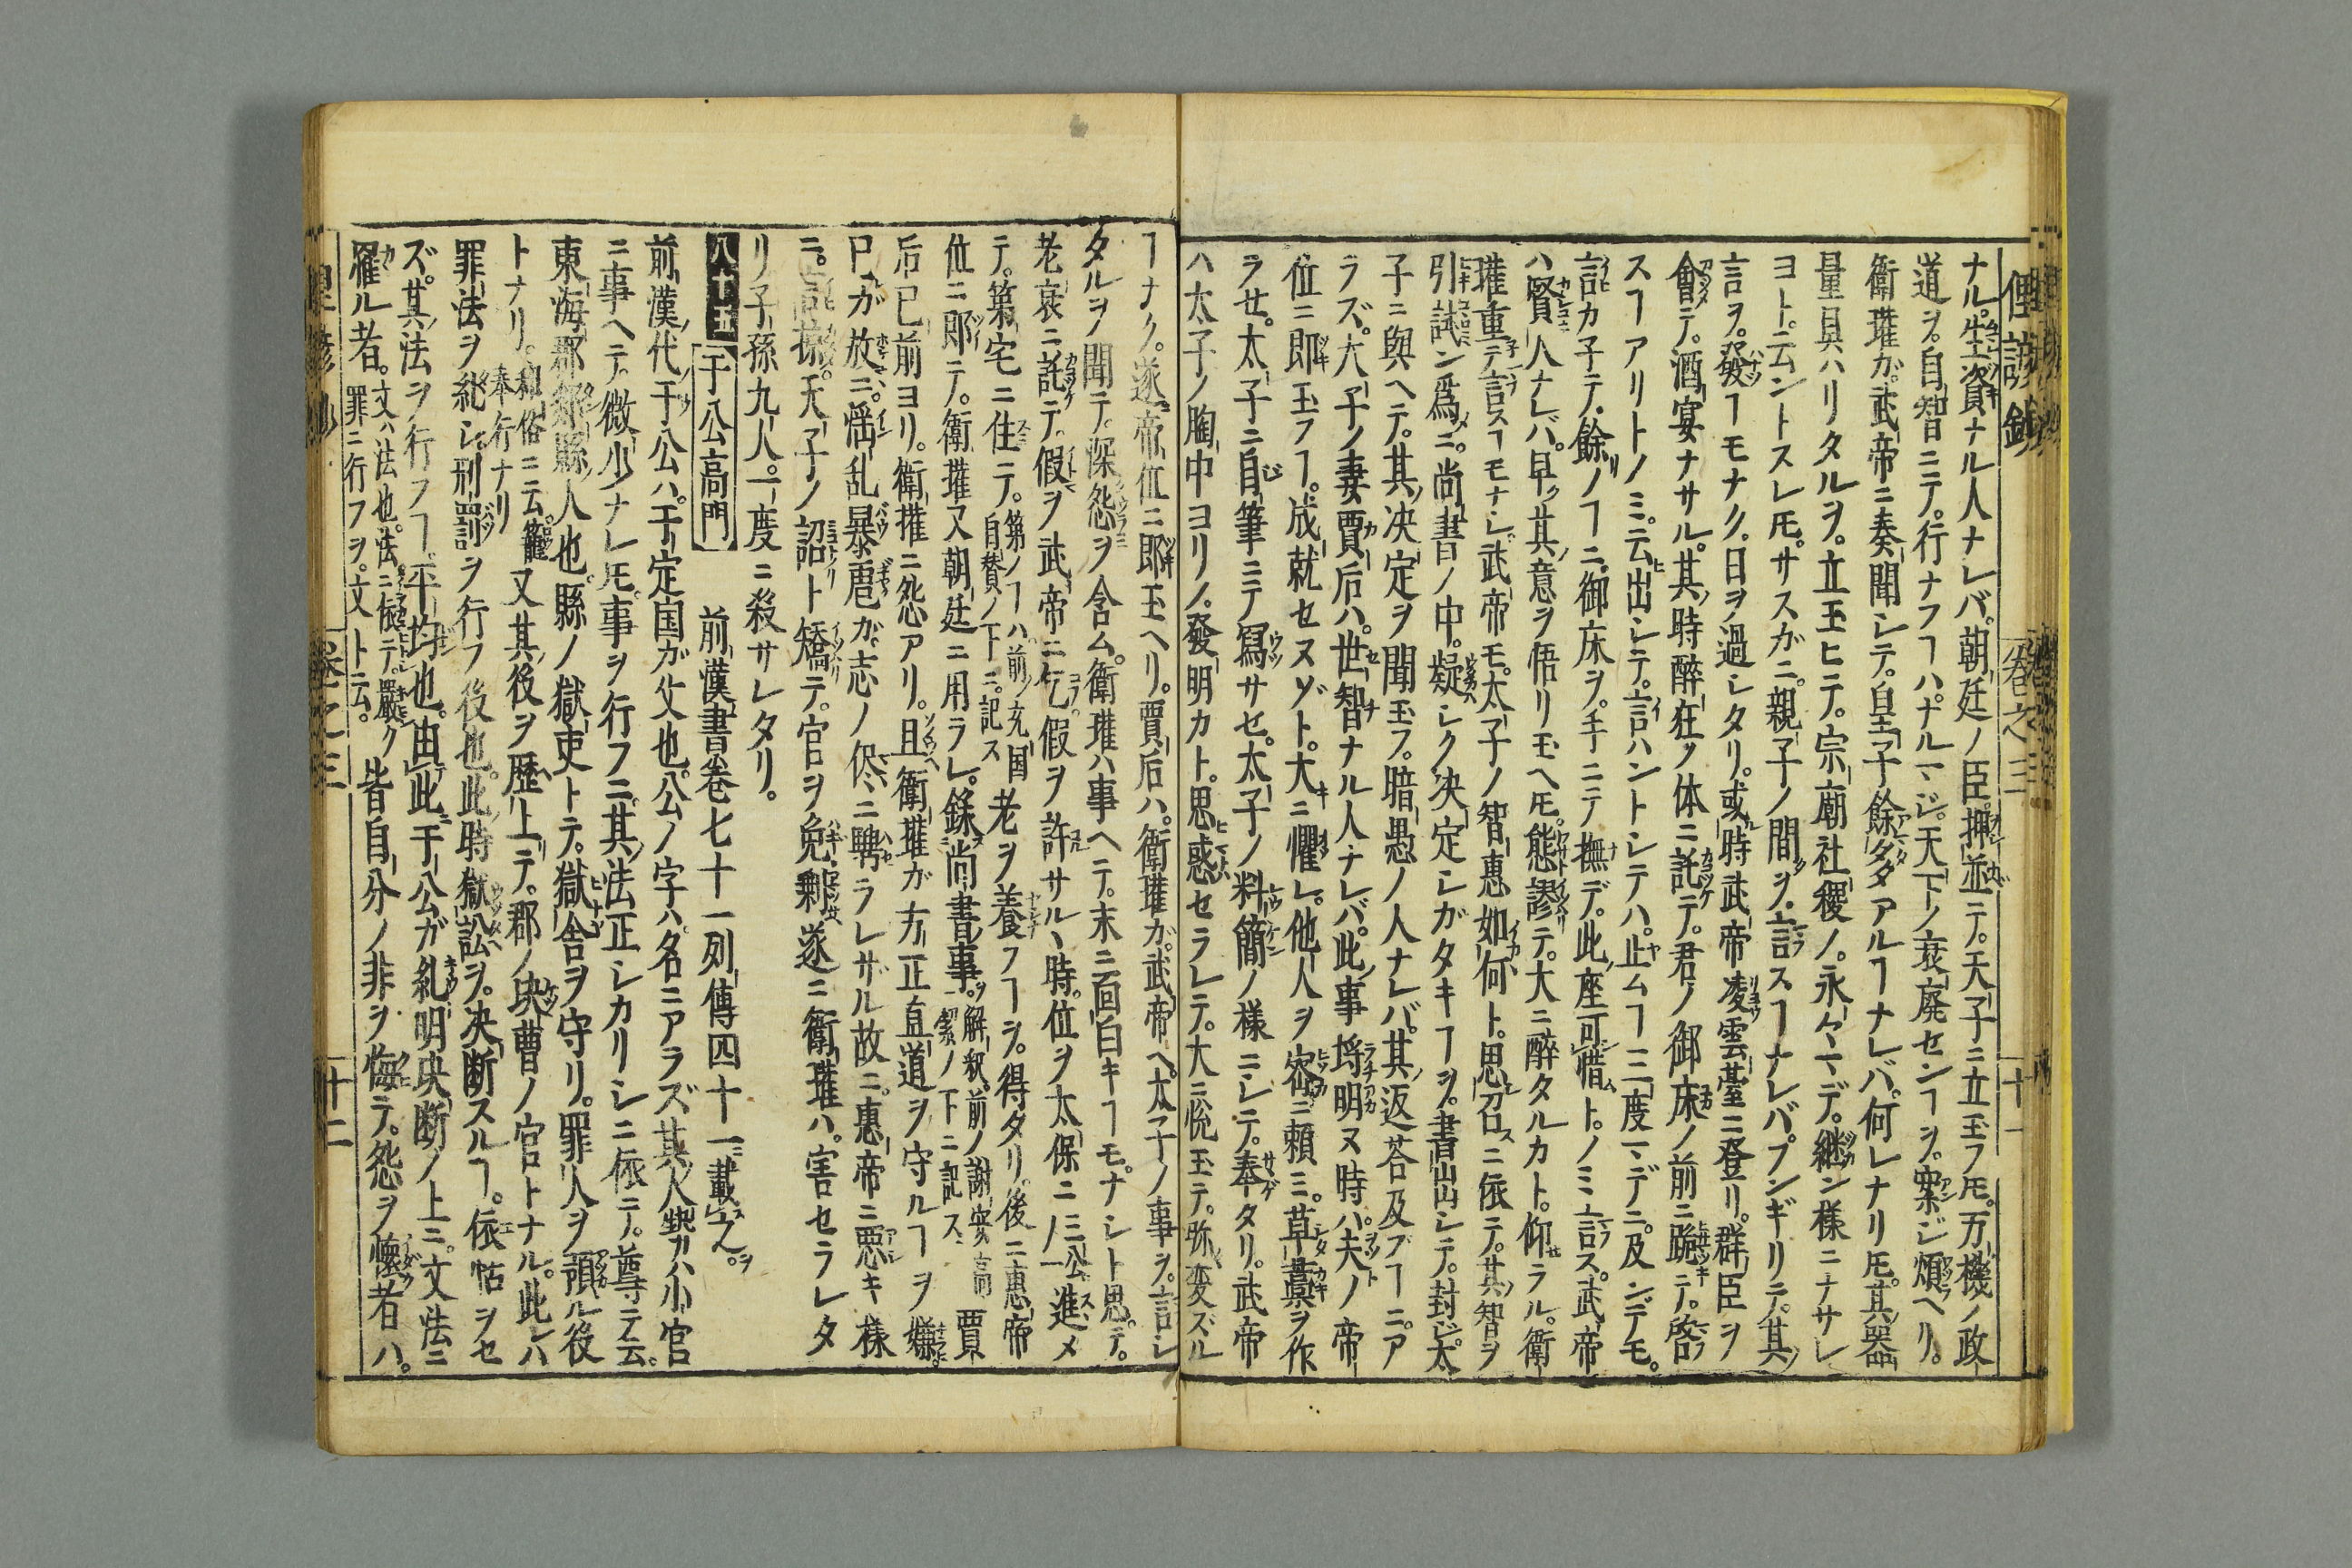 俚諺鈔 卷之三 十一
ナル。生資ナル人ナレバ。朝廷ノ臣。押並ニテ。天子ニ立玉フ𪜈。万機ノ政
道ヲ。自智ニテ。行ナフヿハ。ナルマジ。天下ノ衰廃センヿヲ。案ジ煩ヘリ。
衛瓘ガ。武帝ニ奏聞シテ。皇子餘タアルヿナレバ。何レナリ𪜈。其器
量具ハリタルヲ。立玉ヒテ。宗廟社稷ノ。永々マデ。継ン様ニナサレ
ヨト。云ントスレ𪜈。サスガニ。親子ノ間ヲ。言スヿナレバ。プンギリニテ。其
言ヲ。發ヿモナク。日ヲ過シタリ。或時武帝凌雲臺ニ登リ。群臣ヲ
會テ。酒宴ナサル。其時醉狂ノ体ニ託テ。君ノ御床ノ前ニ跪テ。啓
スヿアリトノミ。云出シテ。言ハントシテハ。止ムヿ三度マデニ。及ンデモ。
言カ子テ。餘ノヿニ。御床ヲ。手ニテ撫デ。此座可惜ト。ノミ言ス。武帝
ハ賢人ナレバ。早ク其意ヲ悟リ玉ヘ𪜈。態謬テ。大ニ醉タルカト。仰ラル。衛
瓘重テ言スヿモナシ。武帝モ。太子ノ智惠如何ト。思召スニ依テ。其智ヲ
引試ン爲ニ。尚書ノ中。疑シク决定シガタキヿヲ。書出シテ。封ジ。太
子ニ與ヘテ。其决定ヲ聞玉フ。暗愚ノ人ナレバ。其返荅及ブヿニ。ア
ラズ。太子ノ妻賈后ハ。世智ナル人ナレバ。此事埒明ヌ時ハ。夫ノ帝
位ニ即玉フヿ。成就セヌゾト。大ニ懼レ。他人ヲ密ニ頼ミ。草藁ヲ作
ラせ。太子ニ自筆ニテ寫サセ。太子ノ料簡ノ様ニシテ。奉タリ。武帝
ハ太子ノ胸中ヨリノ。發明カト。思惑セラレテ。大ニ悦玉テ。弥変ズル
ヿナク。遂帝位ニ即玉ヘリ。賈后ハ。衛瓘ガ。武帝ヘ。太子ノ事ヲ。言シ
タルヲ聞テ。深怨ヲ含ム。衛瓘ハ事ヘテ。末ニ面白キヿモ。ナシト思テ。
老衰ニ託テ。假ヲ武帝ニ乞。假ヲ許サルヽ時。位ヲ太保ニ三公ノ一進メ
テ。第宅ニ住テ。第ノヿハ。前ノ充国自賛ノ下ニ。記ス老ヲ養フヿヲ。得タリ。後ニ惠帝
位ニ即テ。衛瓘又朝廷ニ用ラレ。録尚書事。ヲ解釈前ノ謝安高絜ノ下ニ記ス賈
后已前ヨリ。衛瓘ニ怨アリ。且衛瓘ガ方正直道ヲ守ルヿヲ嫌。
已ガ放ニ。婬乱暴虐ガ志ノ侭ニ騁ラレザル故ニ。惠帝ニ悪キ様
ニ。言掠。天子ノ詔ト矯テ。官ヲ免。剰遂ニ衛瓘ハ。害セラレタ
リ。子孫九人。一度ニ殺サレタリ。
八十五 于公高門 前漢書卷七十一列傳四十一載之。
前漢代于公ハ。于定国ガ父也。公ノ字ハ。名ニアラズ。其人勢力ハ小官
ニ事ヘテ。微少ナレ𪜈。事ヲ行フニ。其法正シカリシニ依ニテ。尊テ云。
東海郡郯縣ノ人也。縣ノ獄吏トテ。獄舎ヲ守リ。罪人ヲ預ル役
トナリ。和俗ニ云籠奉行ナリ又其後ヲ歴上テ。郡ノ决曹ノ官トナル。此レハ
罪法ヲ糺シ刑罰ヲ行フ役也。此時獄訟ヲ。决断スルヿ。依怙ヲセ
ズ。其法ヲ行フヿ。平均也。由此于公ガ糺明决断ノ上ニ。文法ニ
羅ル者。文ハ法也。法ニ依テ。嚴ク罪ニ行フヲ。文ト云。皆自分ノ非ヲ悔テ。怨ヲ懐者ハ。
俚諺鈔 卷之三 十二